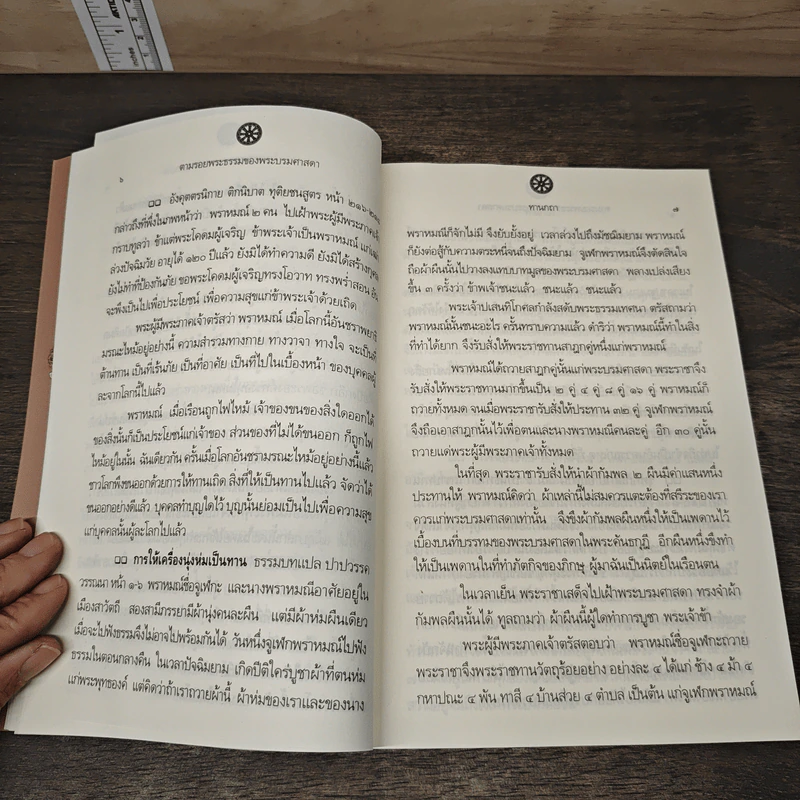 ตามรอยพระธรรมของพระบรมศาสดา
๖
อังคุตตรนิกาย ติกนิบาต ทุติยชนสูตร หน้า ๒๑๖-๒๑๗
กล่าวถึงที่พึ่งในภพหน้าว่า พราหมณ์ ๒ คน ไปเฝ้าพระผู้มีพระภาคเจ้า
กราบทูลว่า ข้าแต่พระโคดมผู้เจริญ ข้าพระเจ้าเป็นพราหมณ์ แก่
ล่วงปัจฉิมวัย อายุได้ ๑๒๐ ปีแล้ว ยังมิได้ทำความดี ยังมิได้สร้างกุศล
ยังไม่ทำที่ป้องกันภัย ขอพระโคดมผู้เจริญทรงโอวาท ทรงพร่ำสอน
จะพึงเป็นไปเพื่อประโยชน์ เพื่อความสุขแก่ข้าพระเจ้าด้วยเถิด
พระผู้มีพระภาคเจ้าตรัสว่า พราหมณ์ เมื่อโลกนี้อันชราพยาธิ
มรณะไหม้อยู่อย่างนี้ ความสำรวมทางกาย ทางวาจา ทางใจ จะเป็นที่
ต้านทาน เป็นที่เร้นภัย เป็นที่อาศัย เป็นที่ไปในเบื้องหน้า ของบุคคลผู้
ละจากโลกนี้ไปแล้ว
พราหมณ์ เมื่อเรือนถูกไฟไหม้ เจ้าของขนของสิ่งใดออกได้
ของสิ่งนั้นก็เป็นประโยชน์แก่เจ้าของ ส่วนของที่ไม่ได้ขนออก ก็ถูกไฟ
ไหม้อยู่ในนั้น ฉันเดียวกัน ครั้นเมื่อโลกอันชรามรณะไหม้อยู่อย่างนี้แล้ว
ชาวโลกพึงขนออกด้วยการให้ทานเถิด สิ่งที่ให้เป็นทานไปแล้ว จัดว่าได้
ขนออกอย่างดีแล้ว บุคคลทำบุญใดไว้ บุญนั้นย่อมเป็นไปเพื่อความสุข
แก่บุคคลนั้นผู้ละโลกไปแล้ว
การให้เครื่องนุ่งห่มเป็นทาน ธรรมบทแปล ปาปวรรค
วรรณนา หน้า ๑-๖ พราหมณ์ชื่อจูเฬกะ และนางพราหมณีอาศัยอยู่ใน
เมืองสาวัตถี สองสามีภรรยามีผ้านุ่งคนละผืน แต่มีผ้าห่มผืนเดียว
เมื่อจะไปฟังธรรมจึงไม่อาจไปพร้อมกันได้ วันหนึ่งจูเฬกพราหมณ์ไปฟัง
ธรรมในตอนกลางคืน ในเวลาปัจฉิมยาม เกิดปีติใคร่บูชาผ้าที่ตนห่ม
แก่พระพุทธองค์ แต่คิดว่าถ้าเราถวายผ้านี้ ผ้าห่มของเราและของนาง
ทานกถา
๗
พราหมณีก็จักไม่มี จึงยับยั้งอยู่ เวลาล่วงไปถึงมัชฌิมยาม พราหมณ์
ก็ยังต่อสู้กับความตระหนี่จนถึงปัจฉิมยาม จูเฬกพราหมณ์จึงตัดสินใจ
ถือผ้าผืนนั้นไปวางลงแทบบาทมูลของพระบรมศาสดา พลางเปล่งเสียง
ขึ้น ๓ ครั้งว่า ข้าพเจ้าชนะแล้ว ชนะแล้ว ชนะแล้ว
พระเจ้าปเสนทิโกศลกำลังสดับพระธรรมเทศนา ตรัสถามว่า
พราหมณ์นั้นชนะอะไร ครั้นทราบความแล้ว ดำริว่า พราหมณ์นี้ทำในสิ่ง
ที่ทำได้ยาก จึงรับสั่งให้พระราชทานสาฎกคู่หนึ่งแก่พราหมณ์
พราหมณ์ได้ถวายสาฎกคู่นั้นแก่พระบรมศาสดา พระราชาจึง
รับสั่งให้พระราชทานมากขึ้นเป็น ๒ คู่ ๔ คู่ ๘ คู่ ๑๖ คู่ พราหมณ์ก็
ถวายทั้งหมด จนเมื่อพระราชารับสั่งให้ประทาน ๓๒ คู่ จูเฬกพราหมณ์
จึงถือเอาสาฎกนั้นไว้เพื่อตนและนางพราหมณีคนละคู่ อีก ๓๐ คู่นั้น
ถวายแด่พระผู้มีพระภาคเจ้าทั้งหมด
ในที่สุด พระราชารับสั่งให้นำผ้ากัมพล ๒ ผืนมีค่าแสนหนึ่ง
ประทานให้ พราหมณ์คิดว่า ผ้าเหล่านี้ไม่สมควรแตะต้องที่สรีระของเรา
ควรแก่พระบรมศาสดาเท่านั้น จึงขึงผ้ากัมพลผืนหนึ่งให้เป็นเพดานไว้
เบื้องบนที่บรรทมของพระบรมศาสดาในพระคันธกุฎี อีกผืนหนึ่งขึงทำ
ให้เป็นเพดานในที่ทำภัตกิจของภิกษุ ผู้มาฉันเป็นนิตย์ในเรือนตน
ในเวลาเย็น พระราชาเสด็จไปเฝ้าพระบรมศาสดา ทรงจำผ้า
กัมพลผืนนั้นได้ ทูลถามว่า ผ้าผืนนี้ผู้ใดทำการบูชา พระเจ้าข้า
พระผู้มีพระภาคเจ้าตรัสตอบว่า พราหมณ์ชื่อจูเฬกะถวาย
พระราชาจึงพระราชทานวัตถุร้อยอย่าง อย่างละ ๔ ได้แก่ ช้าง ๔ ม้า ๔
กหาปณะ ๔ พัน ทาสี ๔ บ้านส่วย ๔ ตำบล เป็นต้น แก่จูเฬกพราหมณ์